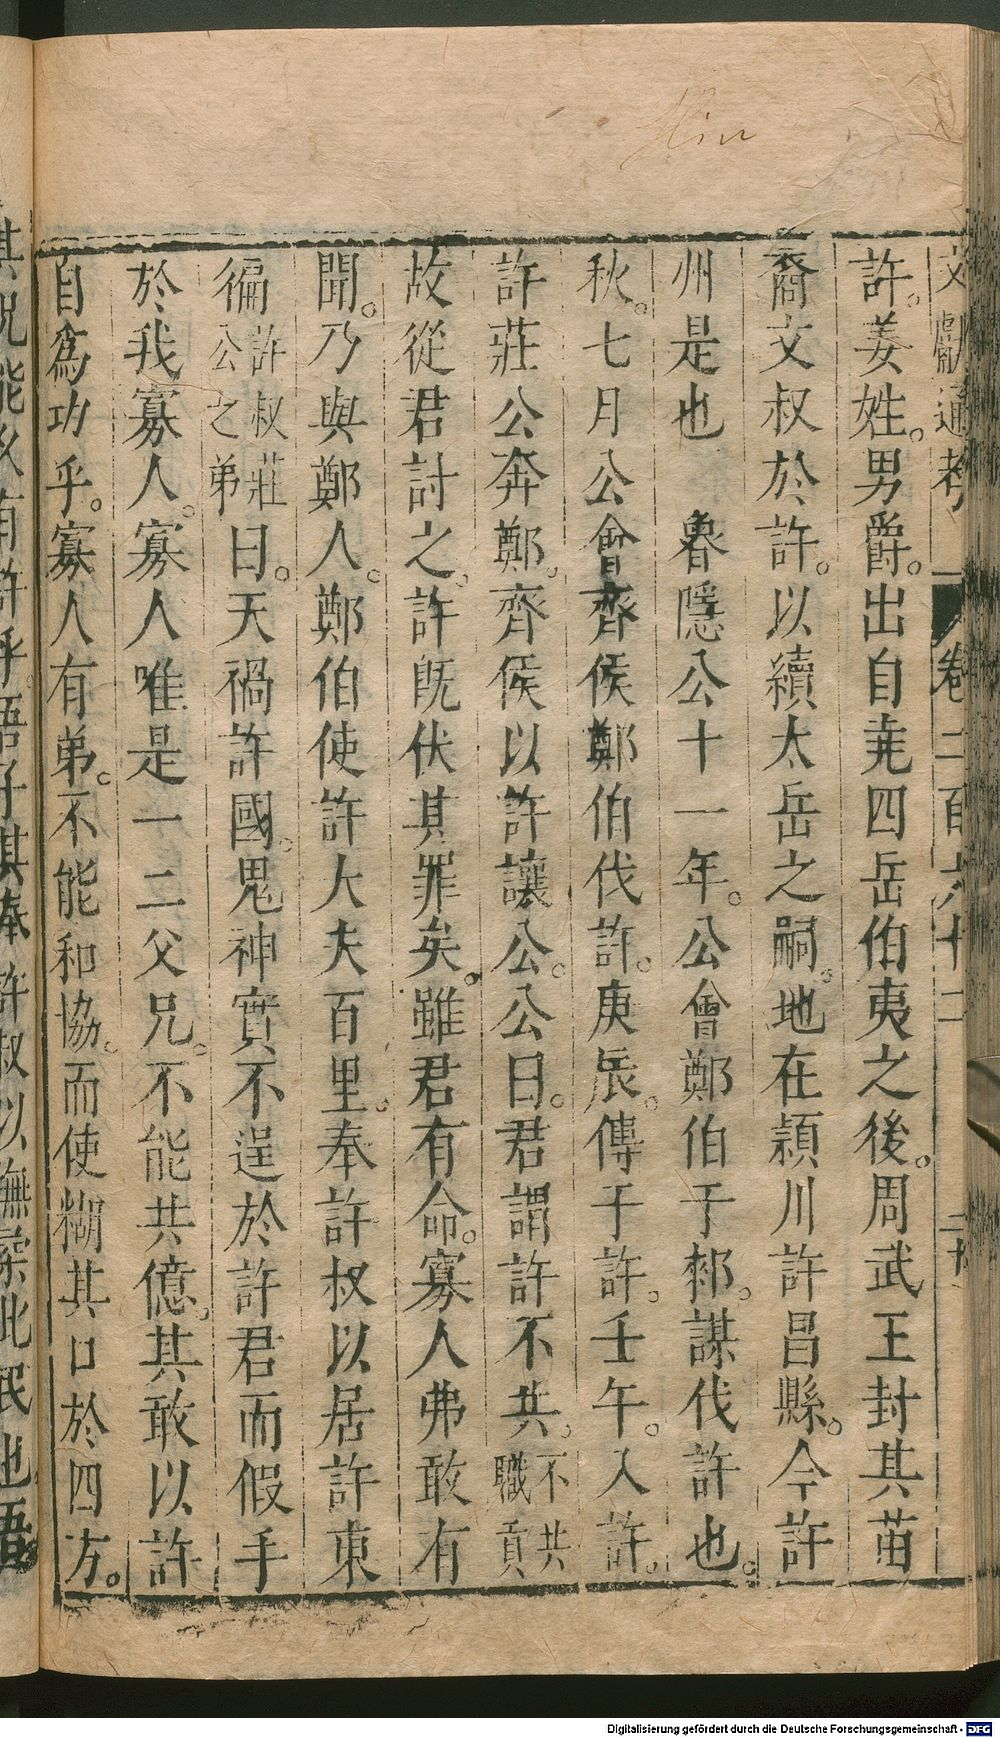 Hiu
文獻通考 卷二百六十二 二十
許。姜姓。男爵。出自堯四岳伯夷之後。周武王封其苗
裔文叔於許。以續太岳之嗣。地在潁川許昌縣。今許
州是也 魯隱公十一年。公會鄭伯于郲。謀伐許也。
秋。七月公會齊侯鄭伯伐許。庚辰。傅于許。壬午。入許。
許莊公奔鄭。齊侯以許讓公。公曰。君謂許不共。不共職貢
故從君討之。許旣伏其罪矣。雖君有命。寡人弗敢有
聞。乃與鄭人。鄭伯使許大夫百里。奉許叔以居許東
偏許叔莊公之弟曰。天禍許國。鬼神實不逞於許君而假手
於我寡人。寡人唯是一二父兄。不能共億。其敢以許
自為功乎。寡人有弟。不能和協。而使糊其口於四方。
其況能久有許乎吾子其奉許叔以撫柔此民也吾
Digitalisierung gefördert durch die Deutsche Forschungsgemeinschaft - DFG